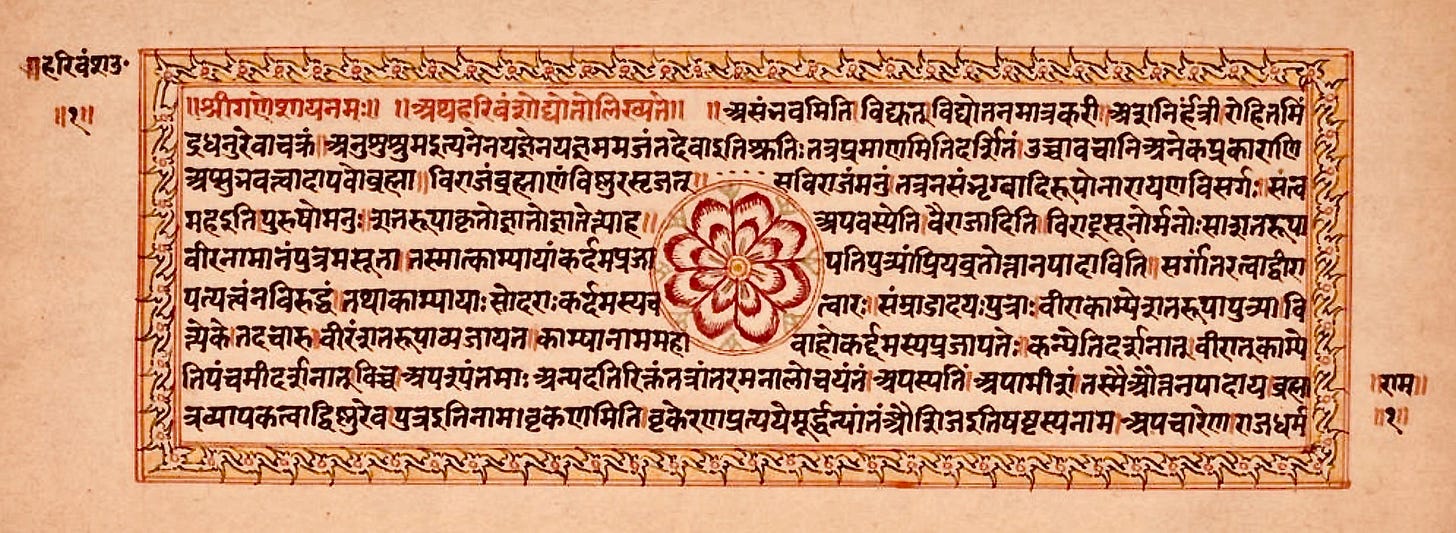 ॥हरिवंशउ॰
॥१॥
॥श्रीगणेशायनमः॥ ॥अथहरिवंशोद्योतोलिख्यते॥ ॥असंभवमिति विद्युत् विद्योतनमात्रकरी अशनिर्हंत्री रोहितमिं
द्रधनुरेवाचक्रं अनुशुश्रुमइत्यनेनयज्ञेनयज्ञममजंतदेवाइतिश्रुतिःतत्रप्रमाणमितिदर्शितं उच्चावचानिअनेकप्रकाराणि
अप्सुभवत्वादापवोब्रह्मा॥विराजंब्रह्माणंविष्णुरसृजत्॥ सविराजंमनुं तत्रनसंभृग्वादिरूपोनारायणविसर्गः संत्व
महइतिपुरुषोमनुः शतरूपाकृतोज्ञातोज्ञातेत्याह॥ अपवस्येति वैराजादिति विराट्सूनोर्मनोःसाशतरूपा
वीरनामानंपुत्रमसूता तस्मात्काम्यायांकर्दमप्रजा पतिपुत्र्यांप्रियव्रतोत्तानपादाविति॥ सर्गांतरत्वाद्वीरा
पत्यत्वंनविरुद्धं तथाकाम्यायाः सोदराःकर्दमस्यच त्वारः संम्राडादयःपुत्राः वीराकाम्येशतरूपापुत्र्या वि
त्येके तदचारु वीरंशतरूपाव्यजायत काम्यानाममहा बाहोकर्द्दमस्यप्रजापतेः कन्येतिदर्शनात् वीरात्काम्ये
तिपंचमीदर्शनात् किंच अपरूपंतमाः अन्यदतिरिक्तंतत्रांतरमनालोचयंतं अपस्यतिं अपामीशं तस्मैऔत्तनपादाय ब्रह्म
त्रव्यापकत्वाद्विष्णुरेव पुत्रइतिनाम वृकेणमिति वृकेरणप्रत्ययेमूर्द्धन्यांतंऔशिजइतिषष्टस्यनाम अपचारेण राजधर्म
॥राम॥
॥१॥